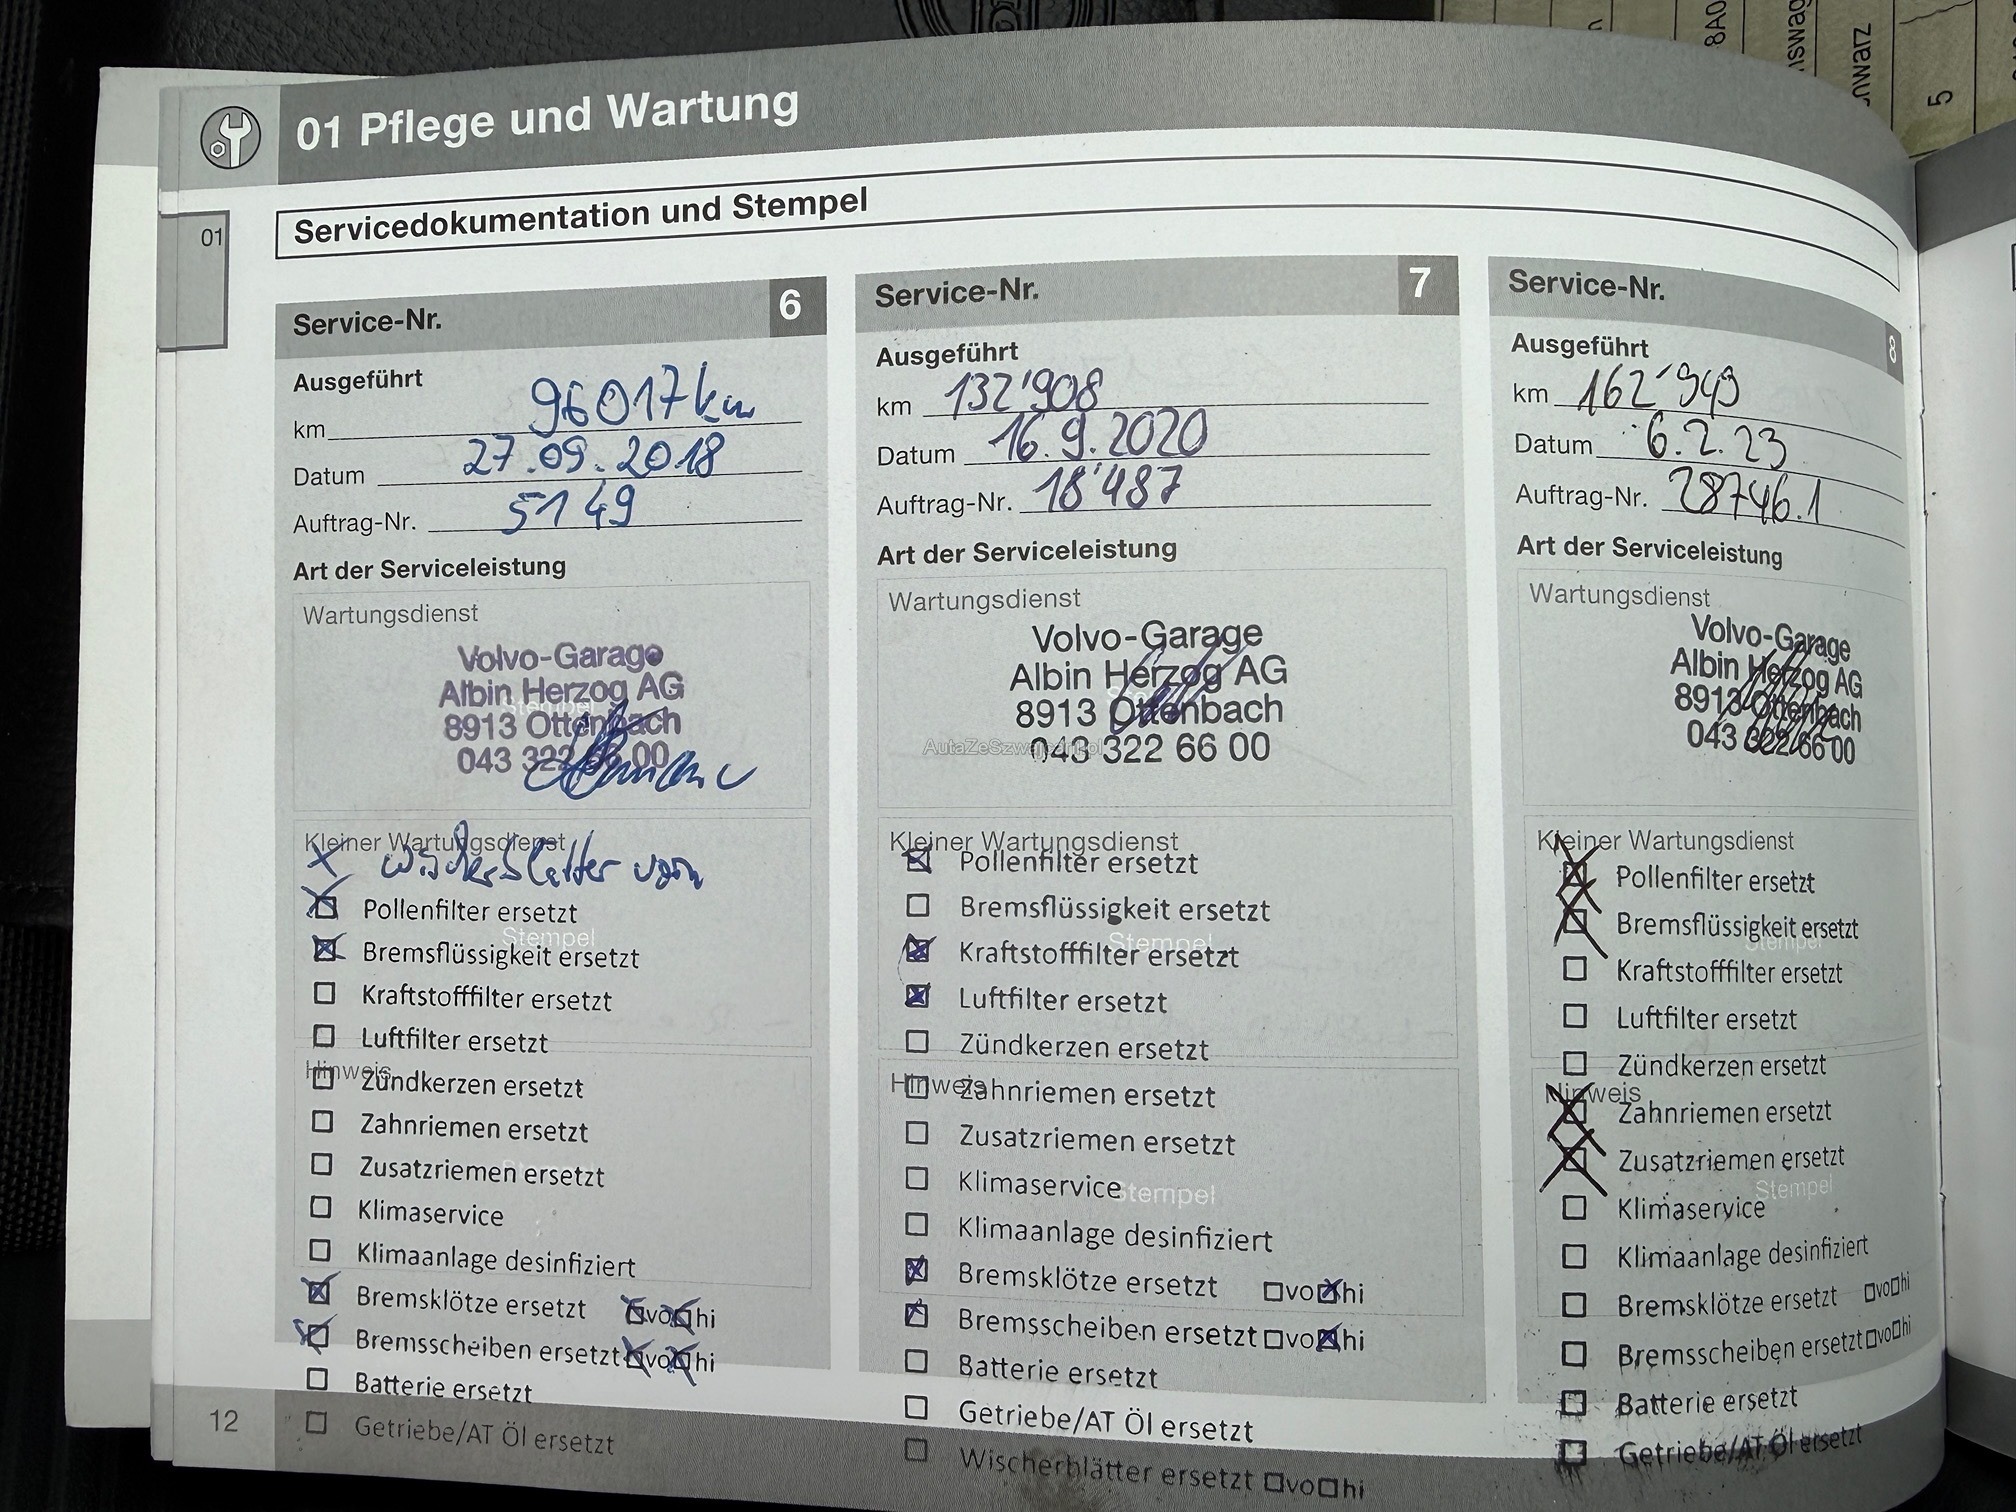 01 Pflege und Wartung
Servicedokumentation und Stempel
01
Service-Nr. 6
Ausgeführt
km 96017 km
Datum 27.09.2018
Auftrag-Nr. 5149
Art der Serviceleistung
Wartungsdienst
Volvo-Garage
Albin Herzog AG
Stempel
8913 Ottenbach
043 322 66 00
Kleiner Wartungsdienst
X Wischerblätter vorn
Pollenfilter ersetzt
Stempel
Bremsflüssigkeit ersetzt
Kraftstofffilter ersetzt
Luftfilter ersetzt
Hinweis
Zündkerzen ersetzt
Zahnriemen ersetzt
Zusatzriemen ersetzt
Klimaservice
Klimaanlage desinfiziert
Bremsklötze ersetzt vo hi
Bremsscheiben ersetzt vo hi
Batterie ersetzt
Getriebe/AT Öl ersetzt
12
Service-Nr. 7
Ausgeführt
km 132'908
Datum 16.9.2020
Auftrag-Nr. 18'487
Art der Serviceleistung
Wartungsdienst
Volvo-Garage
Albin Herzog AG
8913 Ottenbach
043 322 66 00
Kleiner Wartungsdienst
Pollenfilter ersetzt
Bremsflüssigkeit ersetzt
Stempel
Kraftstofffilter ersetzt
Luftfilter ersetzt
Zündkerzen ersetzt
Hinweis
Zahnriemen ersetzt
Zusatzriemen ersetzt
Klimaservice
Stempel
Klimaanlage desinfiziert
Bremsklötze ersetzt vo hi
Bremsscheiben ersetzt vo hi
Batterie ersetzt
Getriebe/AT Öl ersetzt
Wischerblätter ersetzt vo hi
Service-Nr. 8
Ausgeführt
km 162'949
Datum 6.2.23
Auftrag-Nr. 28746.1
Art der Serviceleistung
Wartungsdienst
Volvo-Garage
Albin Herzog AG
8913 Ottenbach
043 322 66 00
Kleiner Wartungsdienst
Pollenfilter ersetzt
Bremsflüssigkeit ersetzt
Stempel
Kraftstofffilter ersetzt
Luftfilter ersetzt
Zündkerzen ersetzt
Hinweis
Zahnriemen ersetzt
Zusatzriemen ersetzt
Stempel
Klimaservice
Klimaanlage desinfiziert
Bremsklötze ersetzt vo hi
Bremsscheiben ersetzt vo hi
Batterie ersetzt
Getriebe/AT Öl ersetzt
8A0
5